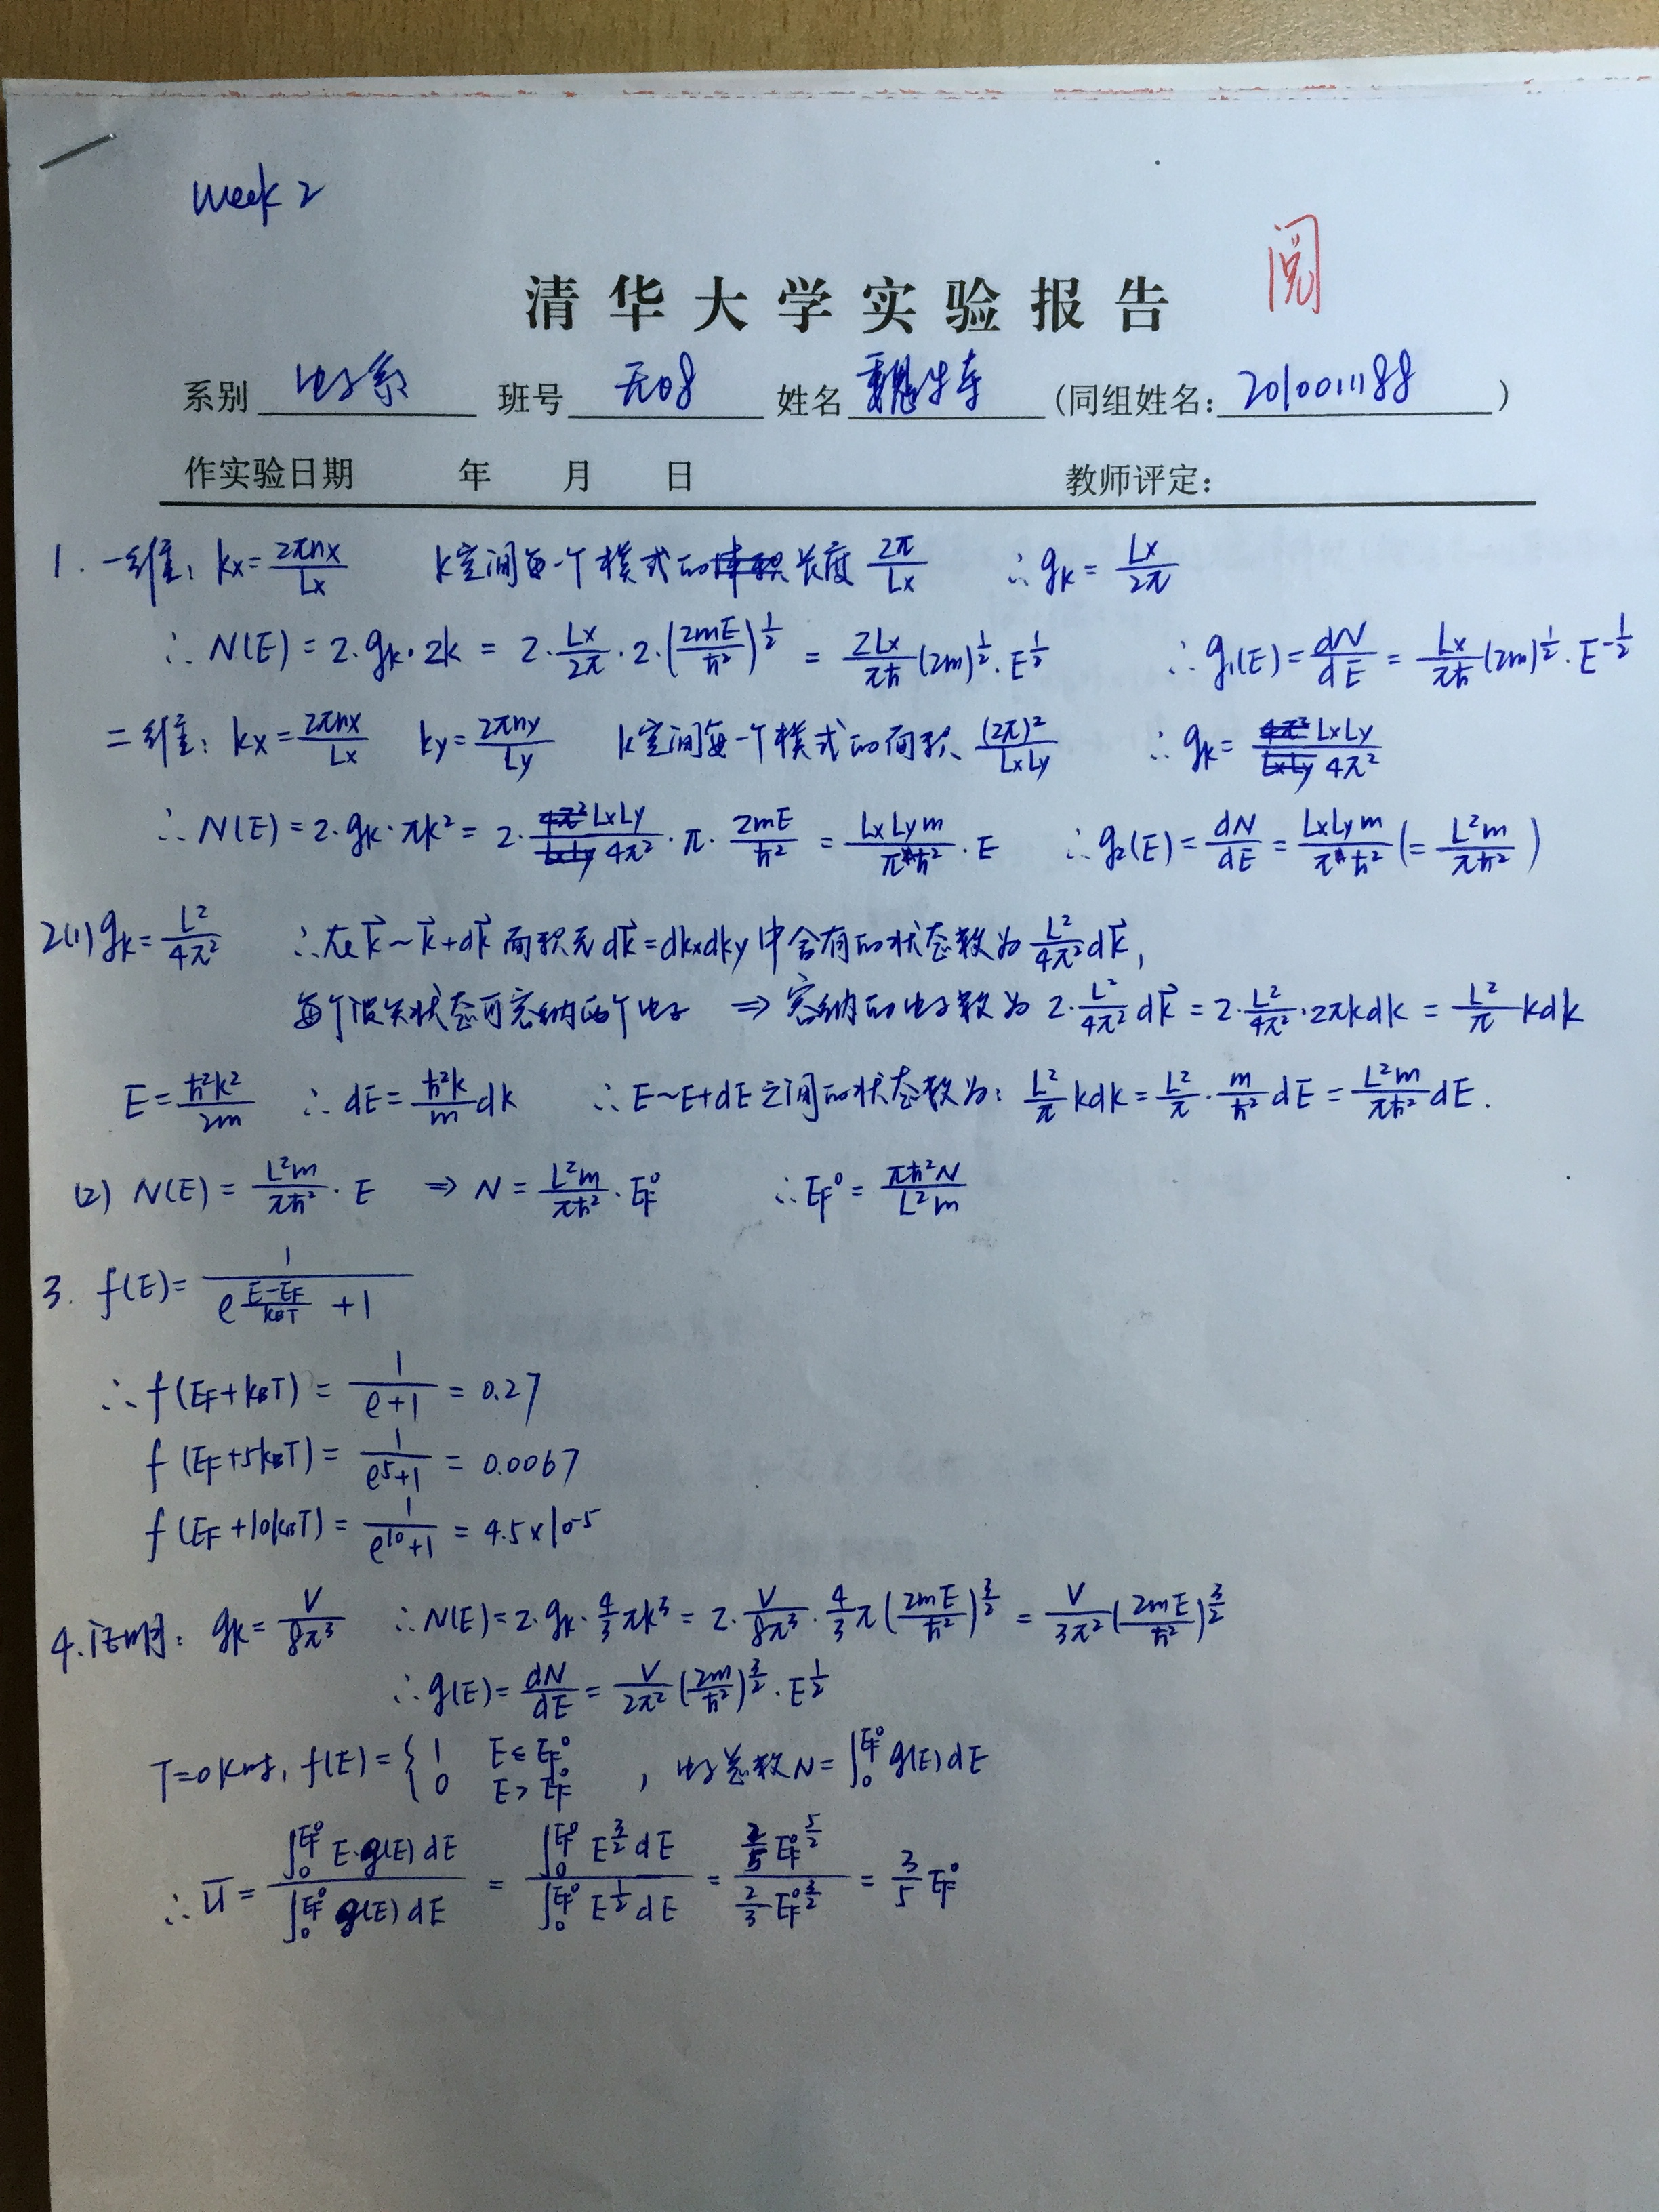 Week 2
阅
清华大学实验报告
系别 电子系 班号 无08 姓名 (同组姓名: 2010011188 )
作实验日期 年 月 日 教师评定:
1. 一维: kx = 2πnx/Lx k空间每一个模式的长度 2π/Lx ∴ gk = Lx/2π
∴ N(E) = 2·gk·2k = 2·Lx/2π·2·(2mE/ħ²)^(1/2) = 2Lx/πħ (2m)^(1/2)·E^(1/2) ∴ g₁(E) = dN/dE = Lx/πħ (2m)^(1/2)·E^(-1/2)
二维: kx = 2πnx/Lx ky = 2πny/Ly k空间每一个模式的面积 (2π)²/LxLy ∴ gk = LxLy/4π²
∴ N(E) = 2·gk·πk² = 2·LxLy/4π²·π·2mE/ħ² = LxLym/πħ²·E ∴ g₂(E) = dN/dE = LxLym/πħ² (= L²m/πħ²)
2(1) gk = L²/4π² ∴ 在k⃗~k⃗+dk⃗ 面积元dk⃗=dkxdky中含有的状态数为 L²/4π² dk⃗,
每个波矢状态可容纳两个电子 ⇒ 容纳的电子数为 2·L²/4π² dk⃗ = 2·L²/4π²·2πkdk = L²/π kdk
E = ħ²k²/2m ∴ dE = ħ²k/m dk ∴ E~E+dE之间的状态数为: L²/π kdk = L²/π·m/ħ² dE = L²m/πħ² dE.
(2) N(E) = L²m/πħ²·E ⇒ N = L²m/πħ²·EF⁰ ∴ EF⁰ = πħ²N/L²m
3. f(E) = 1/(e^((E-EF)/kBT) + 1)
∴ f(EF+kBT) = 1/(e+1) = 0.27
f(EF+5kBT) = 1/(e⁵+1) = 0.0067
f(EF+10kBT) = 1/(e¹⁰+1) = 4.5×10⁻⁵
4. 证明: gk = V/8π³ ∴ N(E) = 2·gk·4/3 πk³ = 2·V/8π³·4/3 π(2mE/ħ²)^(3/2) = V/3π² (2mE/ħ²)^(3/2)
∴ g(E) = dN/dE = V/2π² (2m/ħ²)^(3/2)·E^(1/2)
T=0K时, f(E) = { 1 E≤EF⁰ 0 E>EF⁰ , 电子总数N = ∫₀^(EF⁰) g(E)dE
∴ U̅ = ∫₀^(EF⁰) E·g(E)dE / ∫₀^(EF⁰) g(E)dE = ∫₀^(EF⁰) E^(3/2)dE / ∫₀^(EF⁰) E^(1/2)dE = (2/5 EF⁰^(5/2)) / (2/3 EF⁰^(3/2)) = 3/5 EF⁰